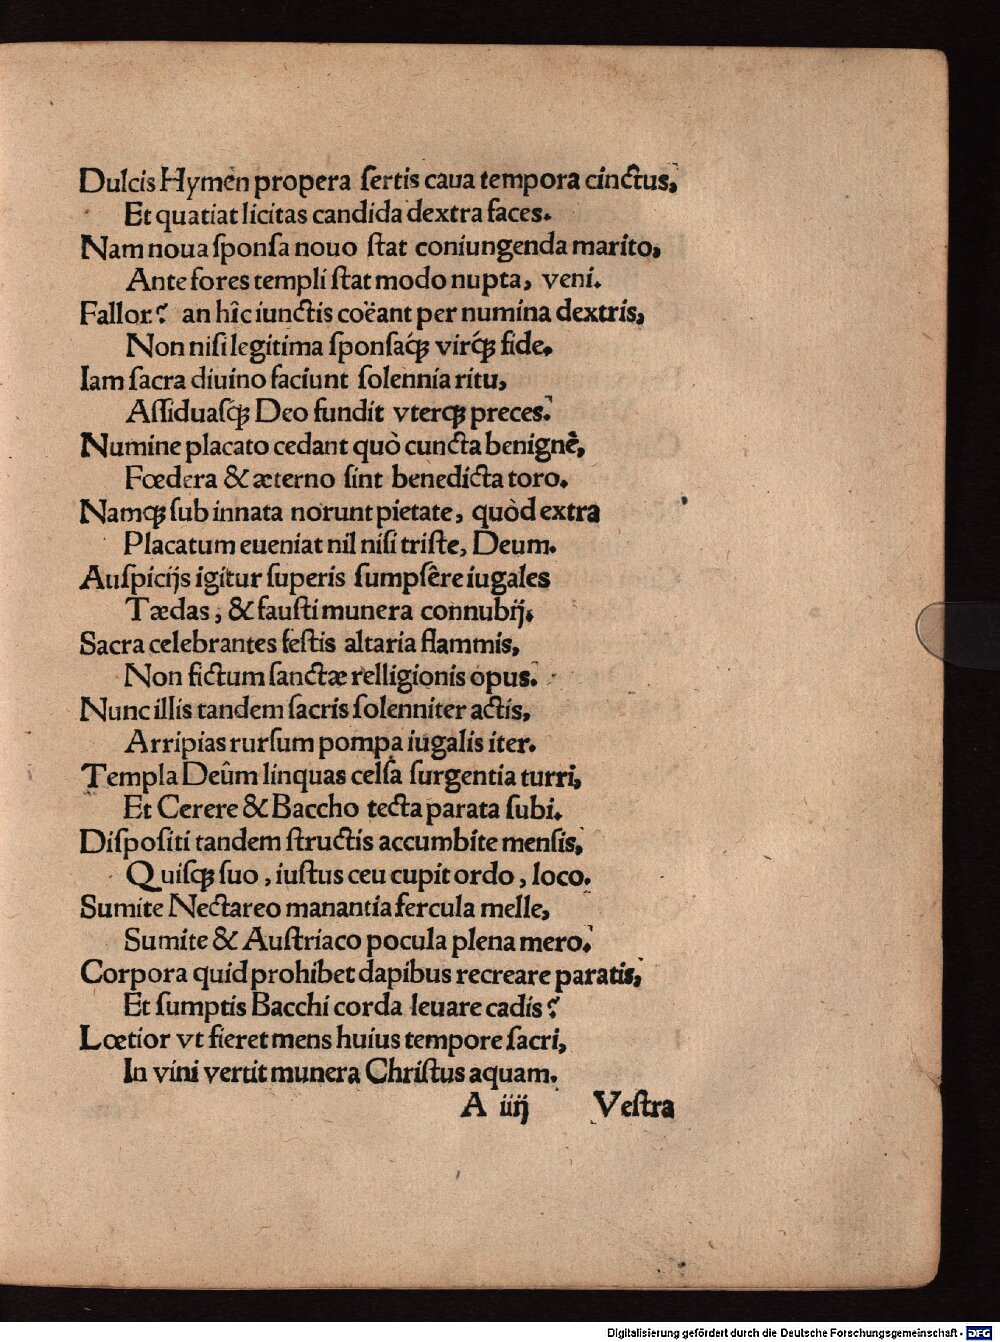 Dulcis Hymen propera ſertis caua tempora cinctus,
Et quatiat licitas candida dextra faces.
Nam noua ſponſa nouo ſtat coniungenda marito,
Ante fores templi ſtat modo nupta, veni.
Fallor? an hîc iunctis coëant per numina dextris,
Non niſi legitima ſponſaq́ꝫ virq́ꝫ fide.
Iam ſacra diuino faciunt ſolennia ritu,
Aſſiduaſq́ꝫ Deo fundit vterqꝫ preces.
Numine placato cedant quò cuncta benignè,
Fœdera & æterno ſint benedicta toro.
Namqꝫ ſub innata norunt pietate, quòd extra
Placatum eueniat nil niſi triſte, Deum.
Auſpicijs igitur ſuperis ſumpſêre iugales
Tædas, & fauſti munera connubij.
Sacra celebrantes feſtis altaria flammis,
Non fictum ſanctæ relligionis opus.
Nunc illis tandem ſacris ſolenniter actis,
Arripias rurſum pompa iugalis iter.
Templa Deûm linquas celſa ſurgentia turri,
Et Cerere & Baccho tecta parata ſubi.
Diſpoſiti tandem ſtructis accumbite menſis,
Quiſqꝫ ſuo, iuſtus ceu cupit ordo, loco.
Sumite Nectareo manantia fercula melle,
Sumite & Auſtriaco pocula plena mero.
Corpora quid prohibet dapibus recreare paratis,
Et ſumptis Bacchi corda leuare cadis?
Lœtior vt fieret mens huius tempore ſacri,
In vini vertit munera Chriſtus aquam.
A iiij Veſtra
Digitalisierung gefördert durch die Deutsche Forschungsgemeinschaft - DFG